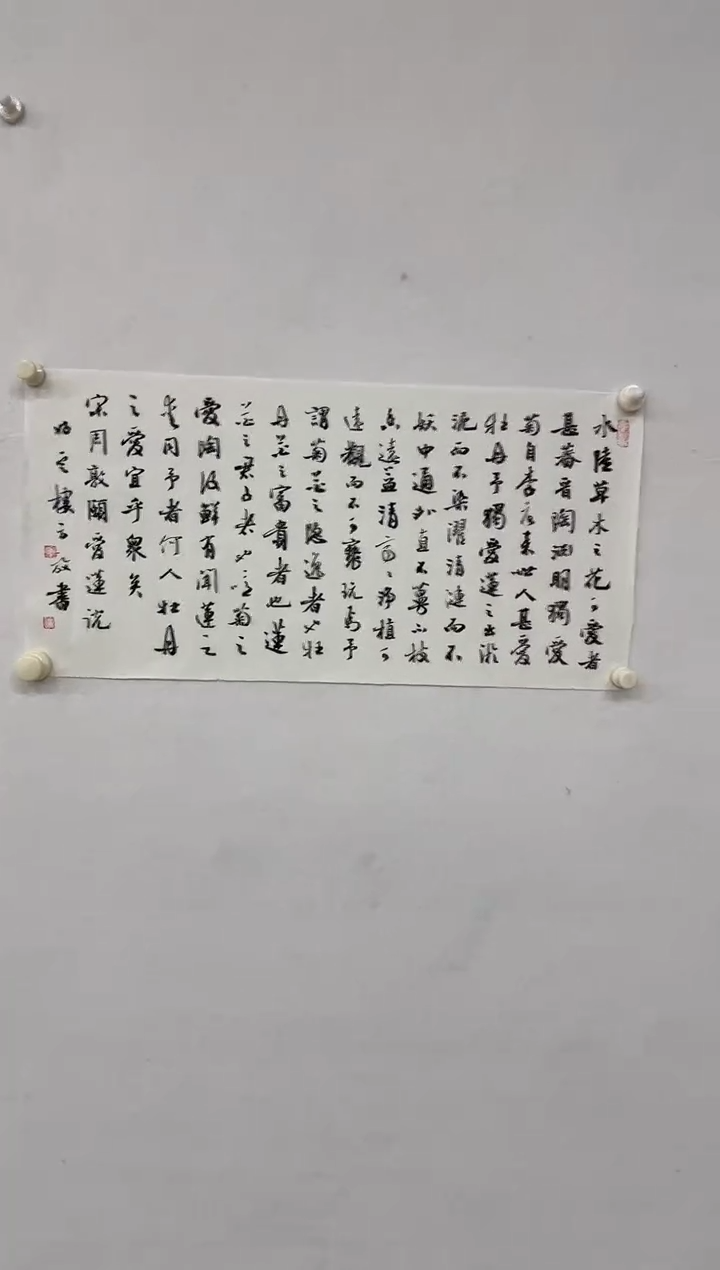 水陸草木之花可愛者
甚蕃晉陶淵明獨愛
菊自李唐來世人甚愛
牡丹予獨愛蓮之出淤
泥而不染濯清漣而不
妖中通外直不蔓不枝
香遠益清亭〻淨植可
遠觀而不可褻玩焉予
謂菊花之隱逸者也牡
丹花之富貴者也蓮
花之君子者也噫菊之
愛陶後鮮有聞蓮之
愛同予者何人牡丹
之愛宜乎衆矣
宋周敦頤愛蓮說
樓書